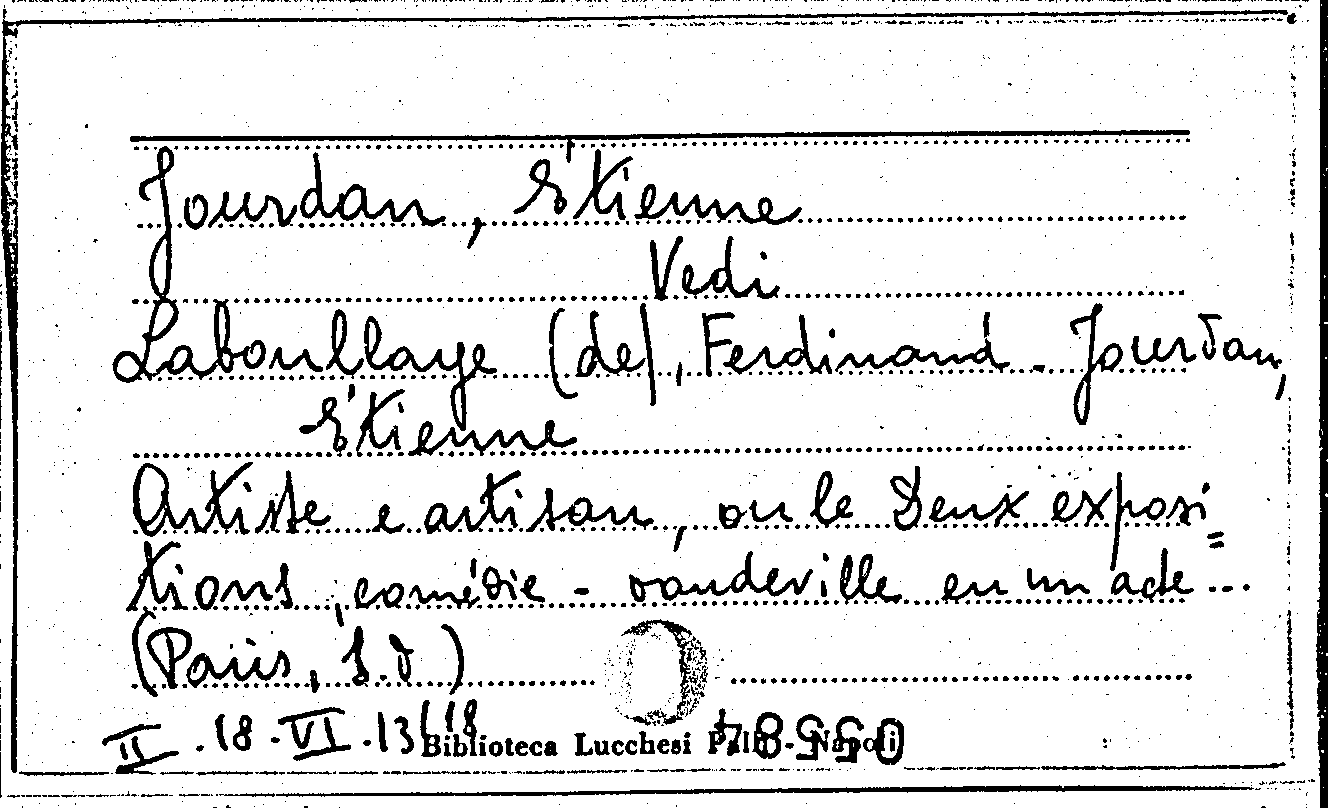 Jourdan, Étienne
Vedi
Laboullaye (de), Ferdinand - Jourdan,
Étienne
Artiste e artisan, ou le Deux exposi=
tions, comédie - vaudeville en un acte...
(Paris, s.d)
II.18.VI.13(18
Biblioteca Lucchesi Palli - Napoli
055584